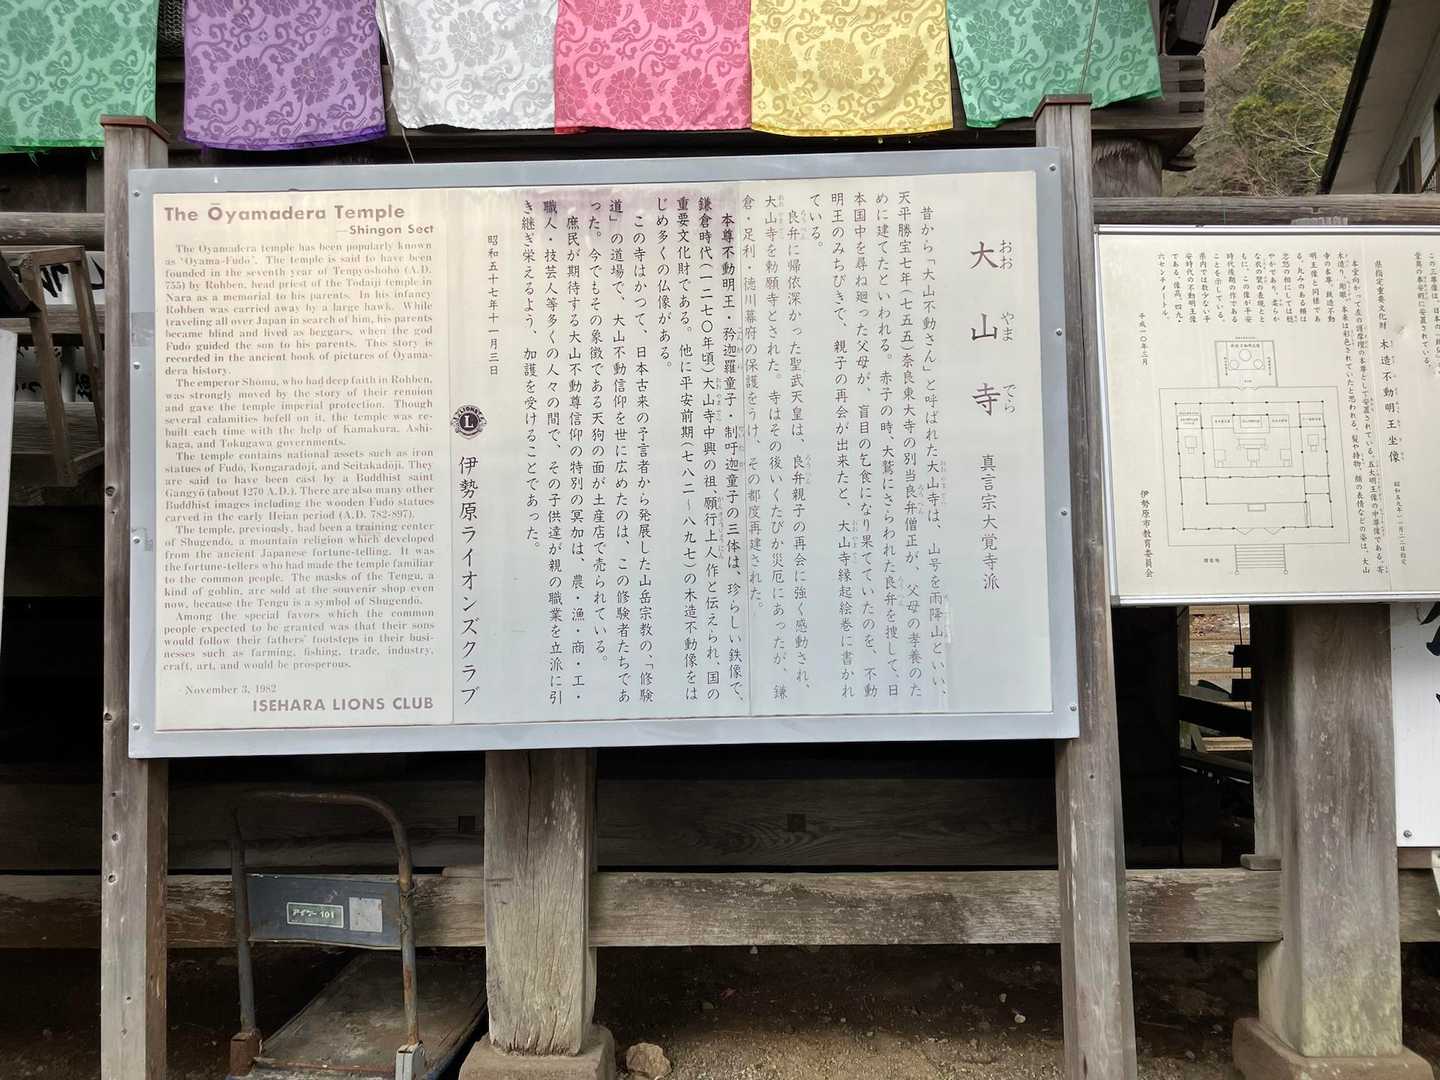 The Ōyamadera Temple
—Shingon Sect
The Oyamadera temple has been popularly known
as "Oyama-Fudo". The temple is said to have been
founded in the seventh year of Tenpyōshōhō (A.D.
755) by Rohben, head priest of the Todaiji temple in
Nara as a memorial to his parents. In his infancy
Rohben was carried away by a large hawk. While
traveling all over Japan in search of him, his parents
became blind and lived as beggars, when the god
Fudo guided the son to his parents. This story is
recorded in the ancient book of pictures of Oyama-
dera history.
The emperor Shōmu, who had deep faith in Rohben,
was strongly moved by the story of their reunion
and gave the temple imperial protection. Though
several calamities befell on it, the temple was re-
built each time with the help of Kamakura, Ashi-
kaga, and Tokugawa governments.
The temple contains national assets such as iron
statues of Fudō, Kongaradōji, and Seitakadōji. They
are said to have been cast by a Buddhist saint
Gangyō (about 1270 A.D.). There are also many other
Buddhist images including the wooden Fudō statues
carved in the early Heian period (A.D. 782-897).
The temple, previously, had been a training center
of Shugendō, a mountain religion which developed
from the ancient Japanese fortune-telling. It was
the fortune-tellers who had made the temple familiar
to the common people. The masks of the Tengu, a
kind of goblin, are sold at the souvenir shop even
now, because the Tengu is a symbol of Shugendō.
Among the special favors which the common
people expected to be granted was that their sons
would follow their fathers' footsteps in their busi-
nesses such as farming, fishing, trade, industry,
craft, art, and would be prosperous.
November 3, 1982
ISEHARA LIONS CLUB
大山寺 真言宗大覚寺派
おお やま でら
昔から「大山不動さん」と呼ばれた大山寺は、山号を雨降山といい、
天平勝宝七年(七五五)奈良東大寺の別当良弁僧正が、父母の孝養のた
めに建てたといわれる。赤子の時、大鷲にさらわれた良弁を捜して、日
本国中を尋ね廻った父母が、盲目の乞食になり果てていたのを、不動
明王のみちびきで、親子の再会が出来たと、大山寺縁起絵巻に書かれ
ている。
良弁に帰依深かった聖武天皇は、良弁親子の再会に強く感動され、
大山寺を勅願寺とされた。寺はその後いくたびか災厄にあったが、鎌
倉・足利・徳川幕府の保護をうけ、その都度再建された。
本尊不動明王・矜迦羅童子・制吒迦童子の三体は、珍らしい鉄像で、
鎌倉時代(一二七〇年頃)大山寺中興の祖願行上人作と伝えられ、国の
重要文化財である。他に平安前期(七八二〜八九七)の木造不動像をは
じめ多くの仏像がある。
この寺はかつて、日本古来の予言者から発展した山岳宗教の、「修験
道」の道場で、大山不動信仰を世に広めたのは、この修験者たちであ
った。今でもその象徴である天狗の面が土産店で売られている。
庶民が期待する大山不動尊信仰の特別の冥加は、農・漁・商・工・
職人・技芸人等多くの人々の間で、その子供達が親の職業を立派に引
き継ぎ栄えるよう、加護を受けることであった。
昭和五十七年十一月三日
LIONS
L
伊勢原ライオンズクラブ
県指定重要文化財 木造不動明王坐像
昭和五九年一一月二二日指定
平成一〇年三月
伊勢原市教育委員会
アイケー 101